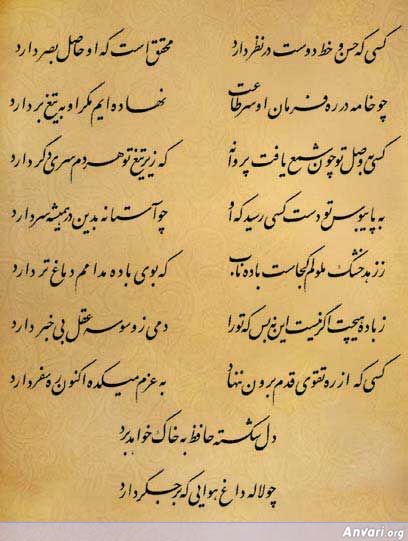 کسی که حسن و خط دوست در نظر دارد محقق است که او حاصل بصر دارد
چو خامه در ره فرمان او سر طاعت نهاده ایم مگر او به تیغ بردارد
کسی به وصل تو چون شمع یافت پروانه که زیر تیغ تو هر دم سری دگر دارد
به پای بوس تو دست کسی رسید که او چو آستانه بدین در همیشه سر دارد
ز زهد خشک ملولم کجاست باده ناب که بوی باده مدامم دماغ تر دارد
ز باده هیچت اگر نیست این نه بس که تو را دمی ز وسوسه عقل بی خبر دارد
کسی که از ره تقوی قدم برون ننهاد به عزم میکده اکنون ره سفر دارد
دل شکسته حافظ به خاک خواهد برد
چو لاله داغ هوایی که بر جگر دارد
Anvari.org